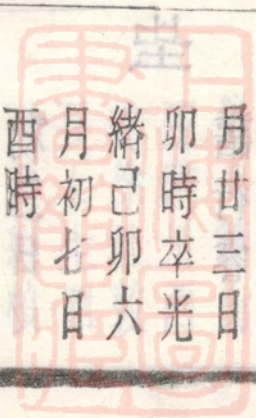 月廿三日
卯時卒光
緒己卯六
月初七日
酉時